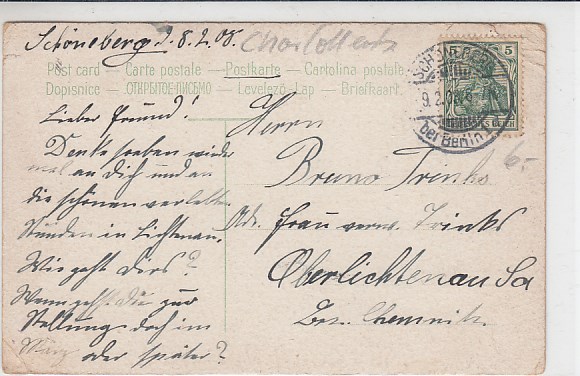 Schöneberg d. 8.2.08.
Charlotte
Post card – Carte postale – Postkarte – Cartolina postale
Dopisnice – ОТКРЫТОЕ ПИСЬМО – Levelező-Lap – Briefkaart
Lieber Freund!
Denke soeben wieder
mal an Dich und an
die schönen verlebten
Stunden in Lichtenau.
Wie geht Dirs?
Wann gehst Du zur
Stellung, doch im
März oder später?
Herrn
Bruno Trinks
Adr. Frau verw. Trinks
Oberlichtenau Sa
Bez. Chemnitz.
5 5
SCHÖNEBERG
9.2.08
bei Berlin
6.-